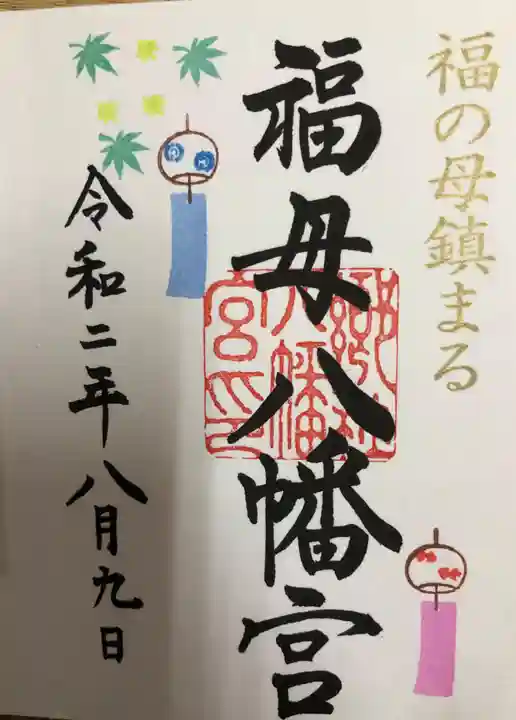 福の母鎮まる
福母八幡宮
郷社八幡宮印
令和二年八月九日